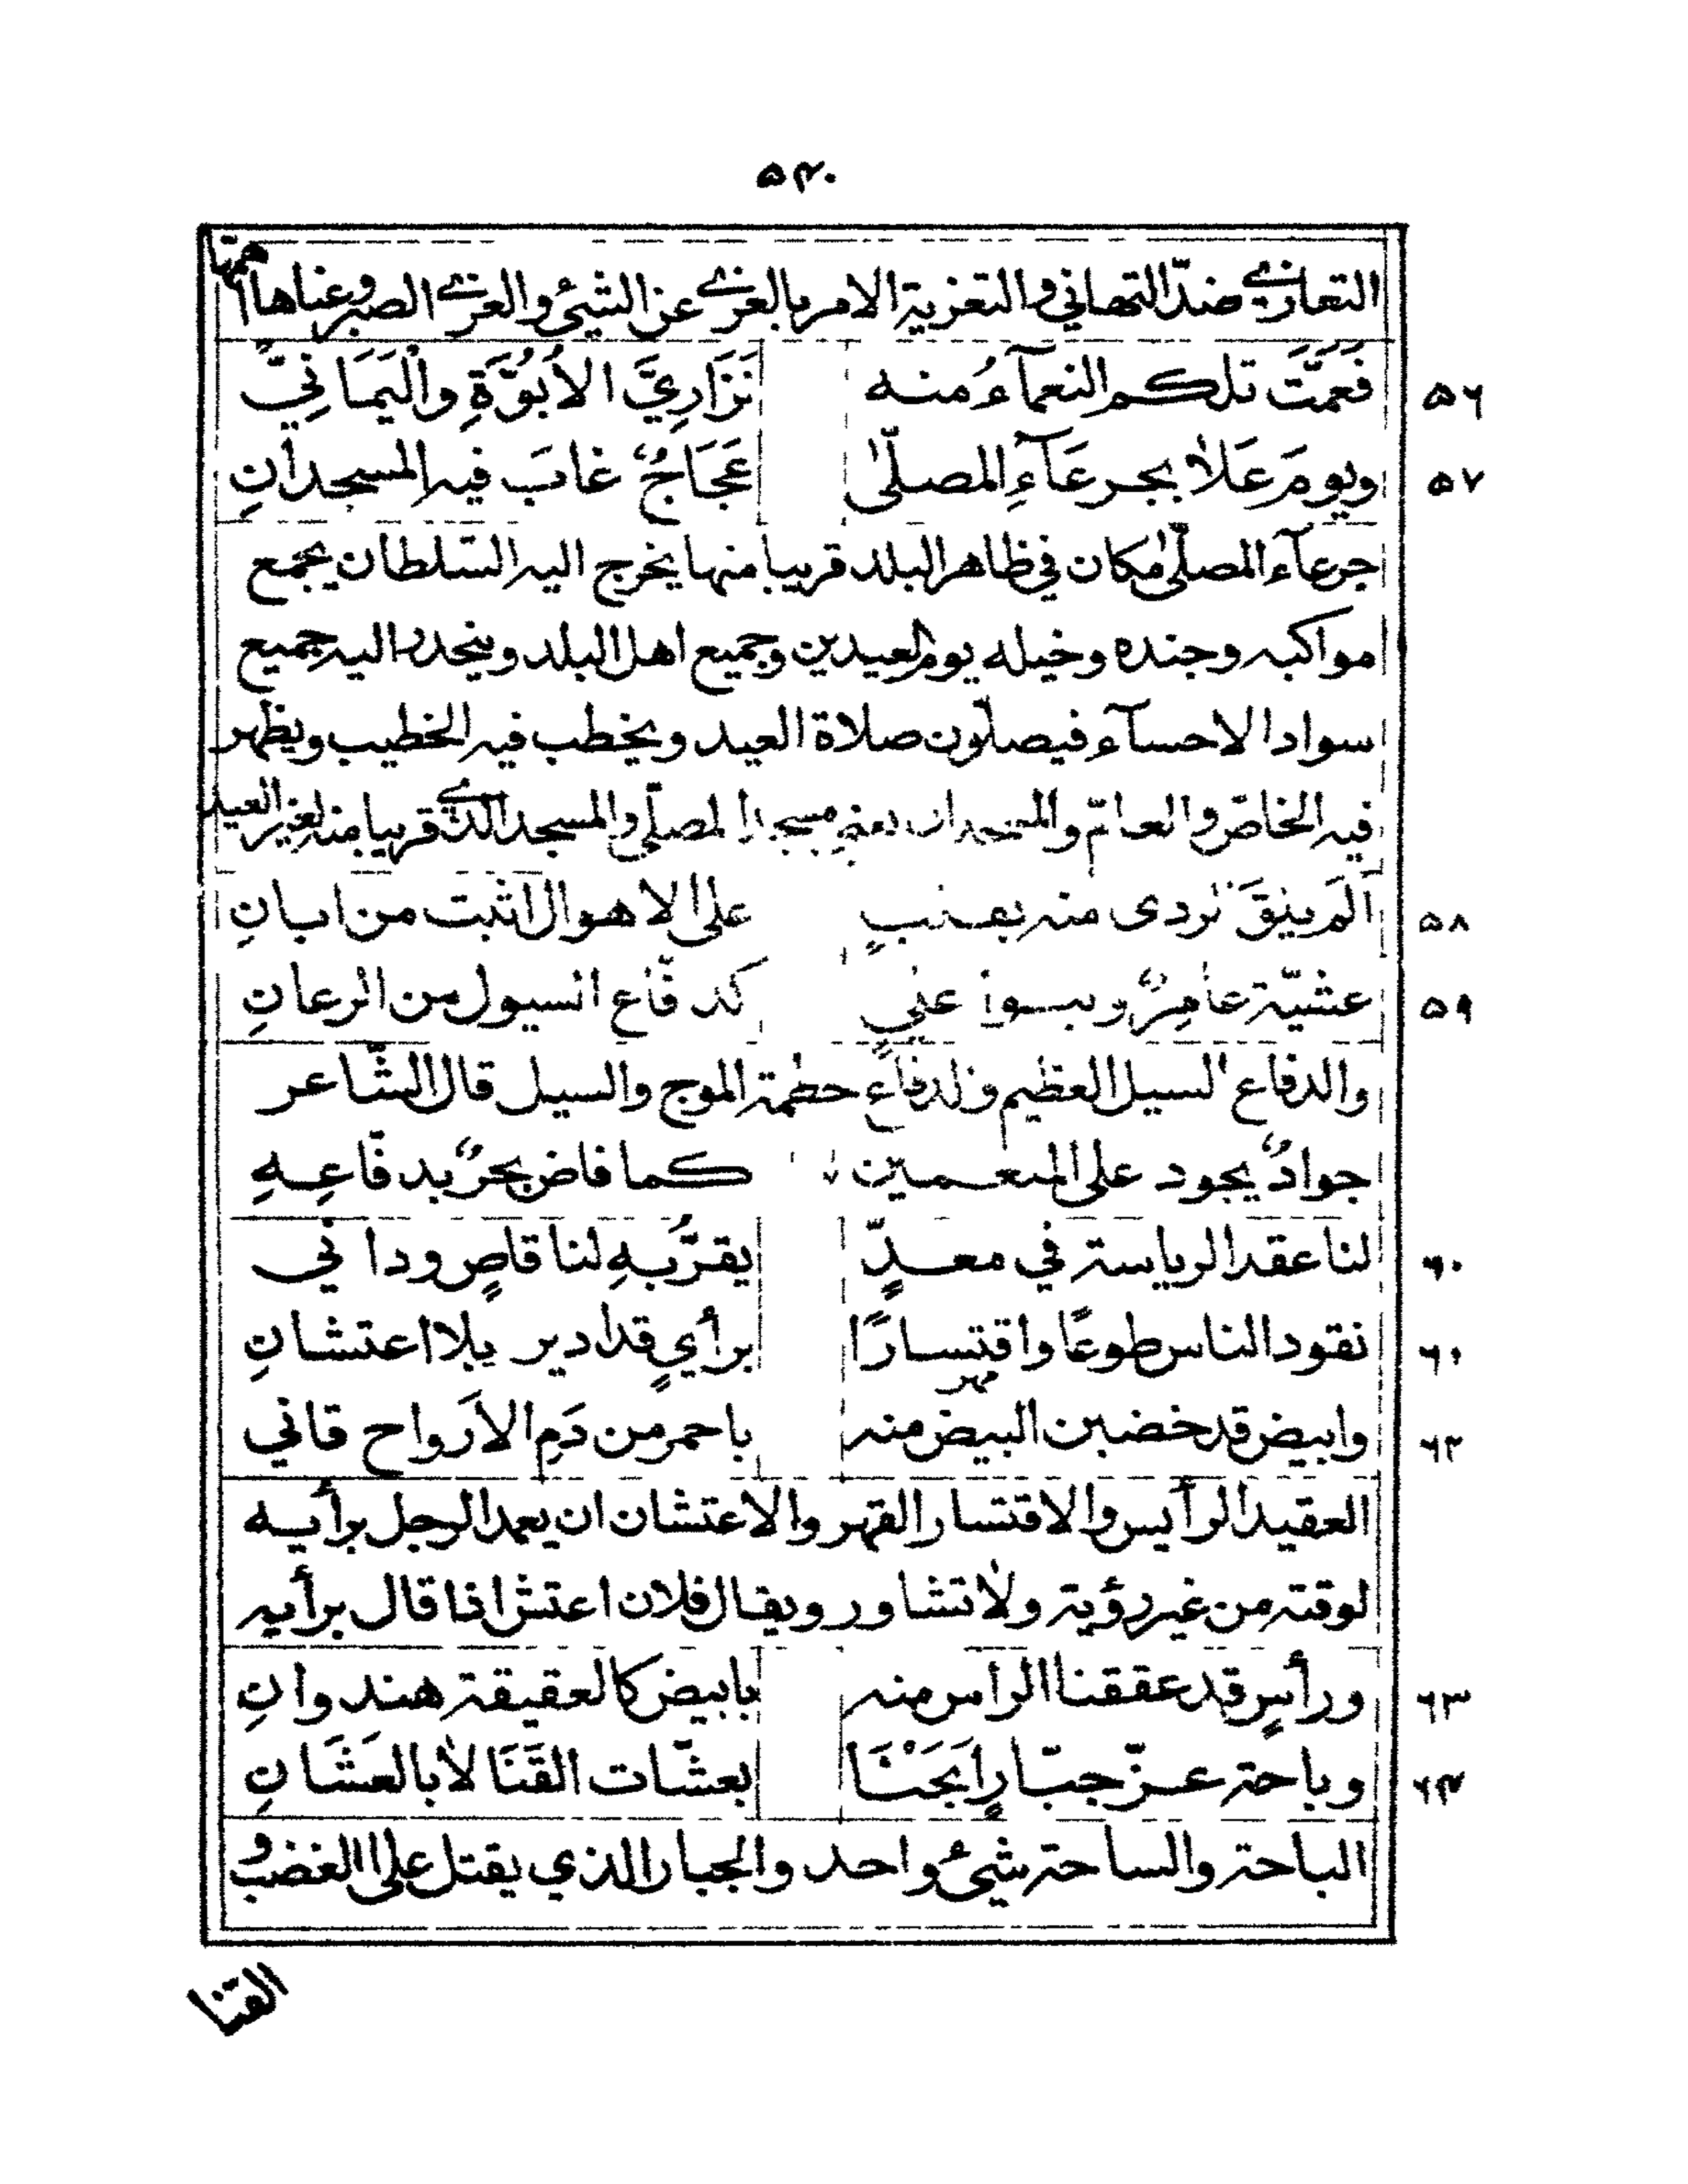 ۵۴۰
التعازي ضدّ التهاني والتعزية الامر بالعزي عن الشيئ والعزي الصبر وعناها اهمّها
۵۶ فَعَمَّتَ تلكم النعمآءُ منه نَزَارِيَّ الأبُوَّةِ والْيَمَانِيِّ
۵۷ ويومَ عَلاٰ بجرعَآءِ المصلّىٰ عَجَاجٌ غابَ فيه المسجدانِ
جرعآء المصلّىٰ مكان في ظاهر البلد قريبا منها يخرج اليه السّلطان يجمع
مواكبه وجنده وخيله يوم العيدين وجميع اهل البلد وينحدر اليه جميع
سواد الاحسآء فيصلّون صلاة العيد ويخطب فيه الخطيب ويظهر
فيه الخاصّ والعامّ والمسجدان يعني مسجد المصلّي والمسجد الذي قريبا منه لغير العيد
۵۸ آلم ينقَ نردى منه بعنبٍ على الاهوال اثبت من ابانِ
۵۹ عشيّة عامِرٌ وبنوا عليٍ كدفّاع السيول من الرعانِ
والدفاع السيل العظيم والدفاع حطمة الموج والسيل قال الشّاعر
جوادٌ يجود على المنعمين كما فاض بحرٌ بدفّاعِهِ
۶۰ لنا عقد الرياسة في معدٍّ يقرُّبهِ لنا قاصٍ وداني
۶۱ نقود الناس طوعًا واقتسارًا برأيٍ قد ادير بلا اعتشانِ
قهر
۶۲ وابيض قد خضبن البيض منه باحمر من دَمِ الاَرواح قاني
العقيد الرأيس والاقتسار القهر والاعتشان ان يعمد الرجل برأيه
لوقته من غير رؤية ولاٰ تشاور ويقال فلان اعتشن اذا قال برأيه
۶۳ ورأسٍ قد عققنا الراس منه بابيض كالعقيقة هندوانِ
۶۴ وباحة عزّ جبّارٍ اَبَحْنَا بعشّات القَنَا لاٰ بالعَشَانِ
الباحة والساحة شيئٌ واحد والجبار الذي يقتل على الغضب و
القنا